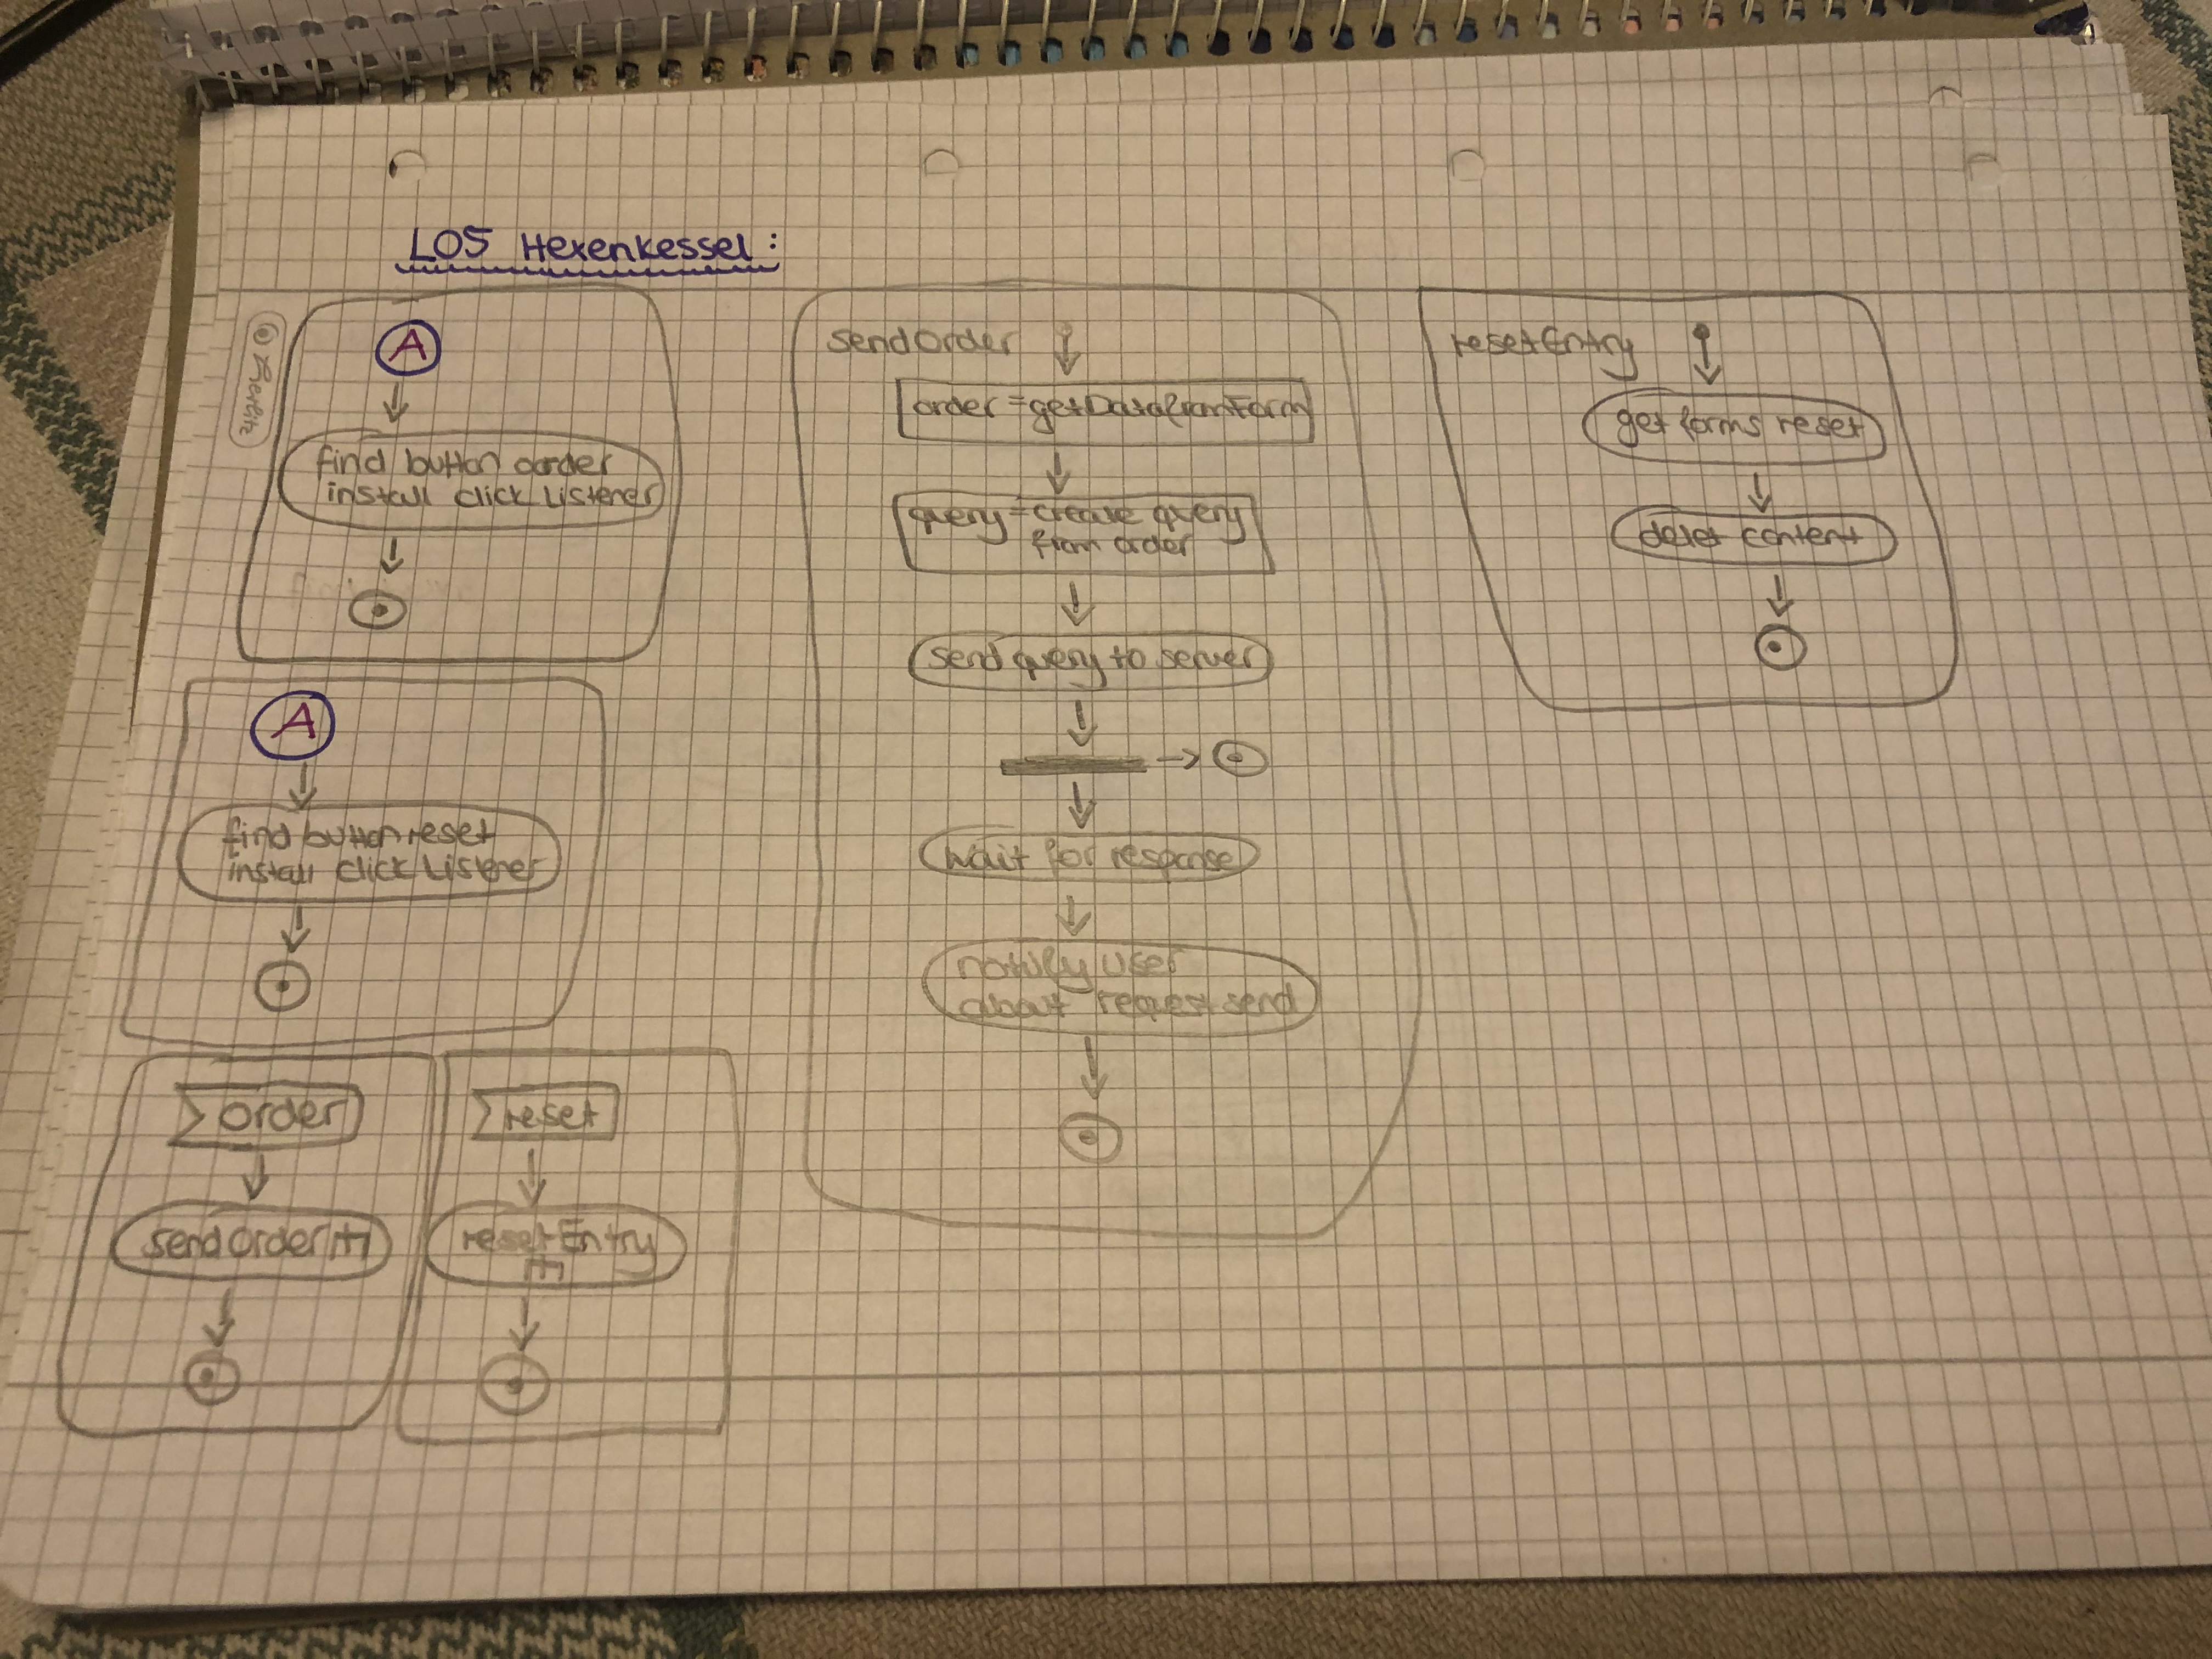 L05 Hexenkessel:
A
find button order
install click Listener
A
find button reset
install click Listener
order
sendOrder
reset
resetEntry
sendOrder
order = getDatafromForm
query = create query
from order
send query to server
wait for response
notify user
about request send
resetEntry
get forms reset
delet content